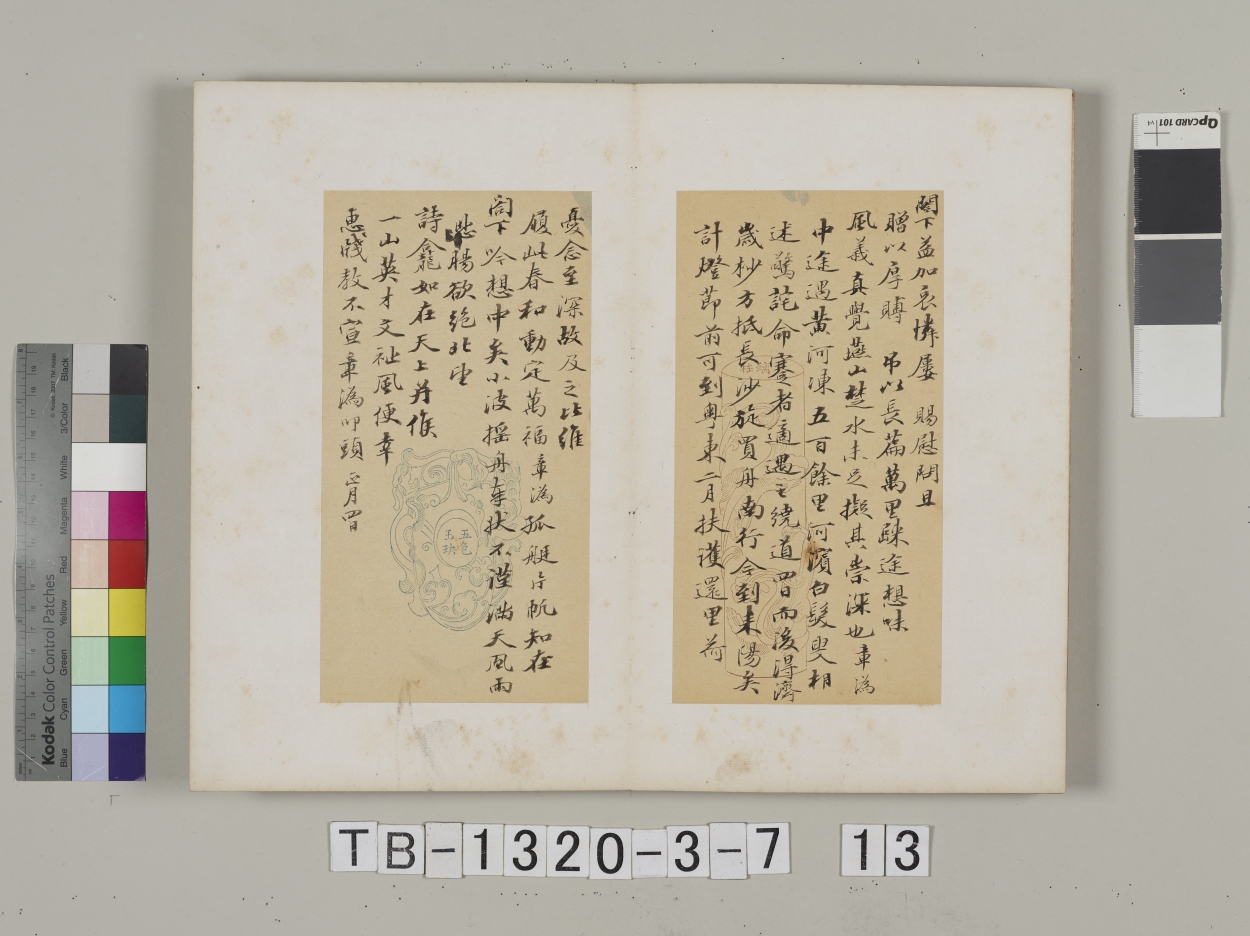 閣下益加哀憐屢 賜慰問且
贈以厚賻 吊以長篇萬里歸途想味
風義真覺燕山楚水未足擬其崇深也章溈
中途遇黃河凍五百餘里河濱白髮叟相
述驚詫命蹇者適遇之繞道四日而後得濟
歲杪方抵長沙旋買舟南行今到耒陽矣
計燈節前可到粵東二月扶護還里荷
憂念至深故及之比維
履此春和動定萬福章溈孤艇片帆知在
閣下吟想中矣小波搖舟奉狀不謹滿天風雨
愁腸欲絕北望
詩龕如在天上并候
一山英才文祉風便幸
惠牋教不宣章溈叩頭 正月四日
五色
玉玦
Kodak Color Control Patches
Blue Cyan Green Yellow Red Magenta White 3/Color Black
QPCARD 101
TB-1320-3-7 13